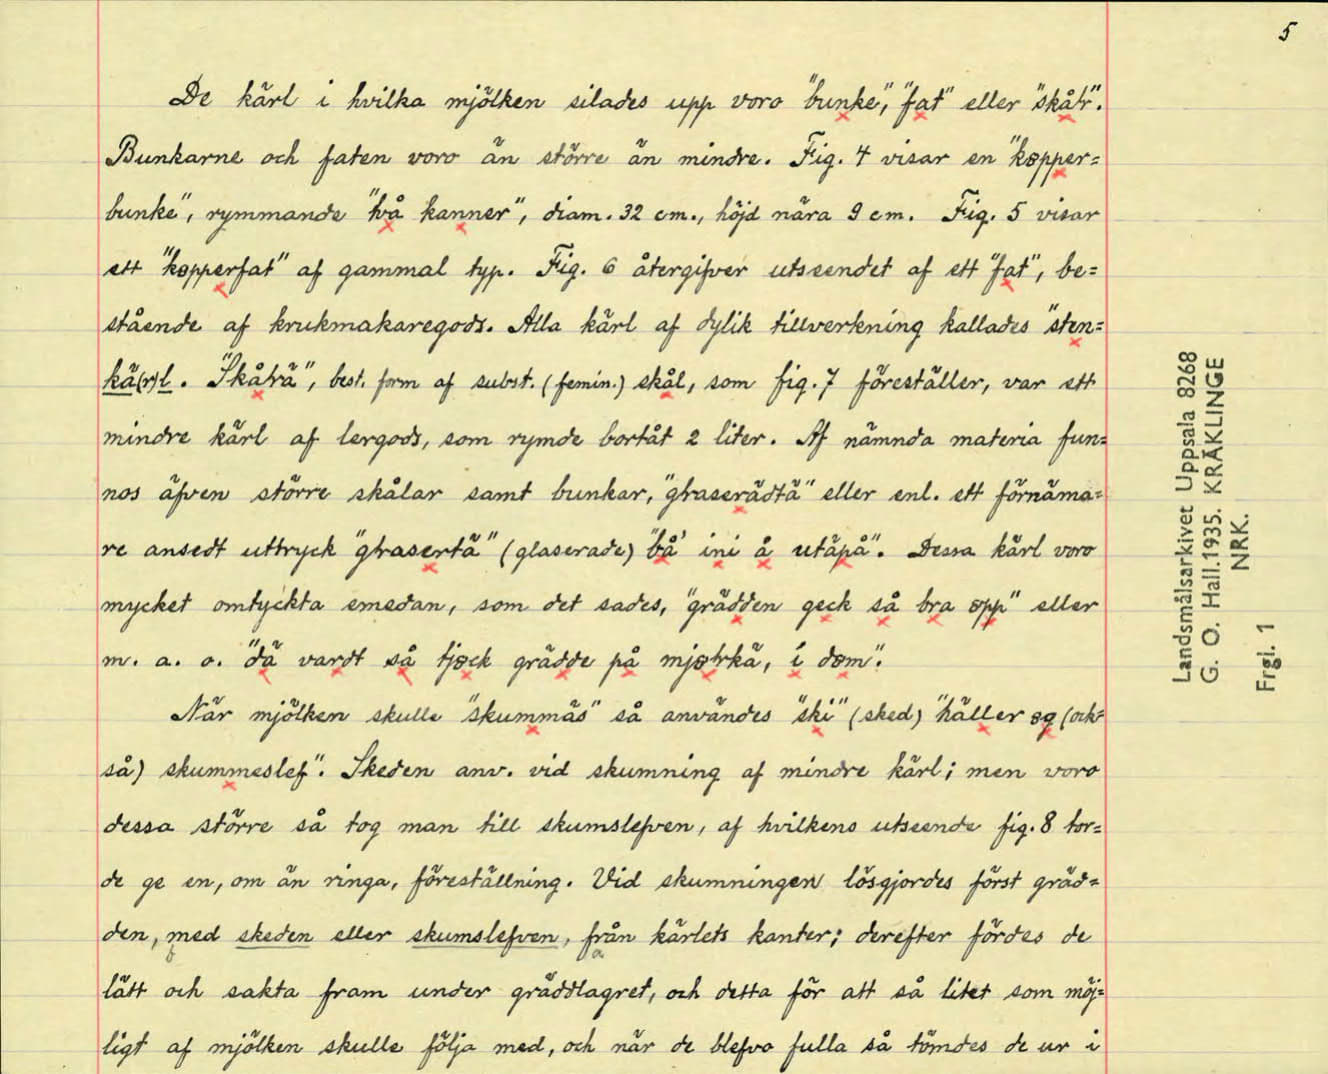 5
De kärl i hvilka mjölken silades upp voro "bunke", "fat" eller "skåłr".
Bunkarne och faten voro än större än mindre. Fig. 4 visar en "køpper=
bunke", rymmande "två kanner", diam. 32 cm., höjd nära 9 cm. Fig. 5 visar
ett "køpperfat" af gammal typ. Fig. 6 återgifver utseendet af ett "fat", be=
stående af krukmakaregods. Alla kärl af dylik tillverkning kallades "sten=
kä(r)l. "Skåłrä", best. form af subst. (femin.) skål, som fig. 7 föreställer, var ett
mindre kärl af lergods, som rymde bortåt 2 liter. Af nämnda materia fun=
nos äfven större skålar samt bunkar, "głraserädtä" eller enl. ett förnäma=
re ansedt uttryck "głrasertä" (glaserade) "bå' ini å utäpå". Dessa kärl voro
mycket omtyckta emedan, som det sades, "grädden geck så bra øpp" eller
m. a. o. "dä vardt så tjøck grädde på mjøłrkä, i døm".
När mjölken skulle "skummäs" så användes "ski" (sked) "häller øg (ock=
så) skummeslef". Skeden anv. vid skumning af mindre kärl; men voro
dessa större så tog man till skumslefven, af hvilkens utseende fig. 8 tor=
de ge en, om än ringa, föreställning. Vid skumningen lösgjordes först gräd=
den, med skeden eller skumslefven, från kärlets kanter; derefter fördes de
lätt och sakta fram under gräddlagret, och detta för att så litet som möj=
ligt af mjölken skulle följa med, och när de blefvo fulla så tömdes de ur i
Landsmålsarkivet Uppsala 8268
G. O. Hall. 1935. KRÄKLINGE
NRK.
Frgl. 1